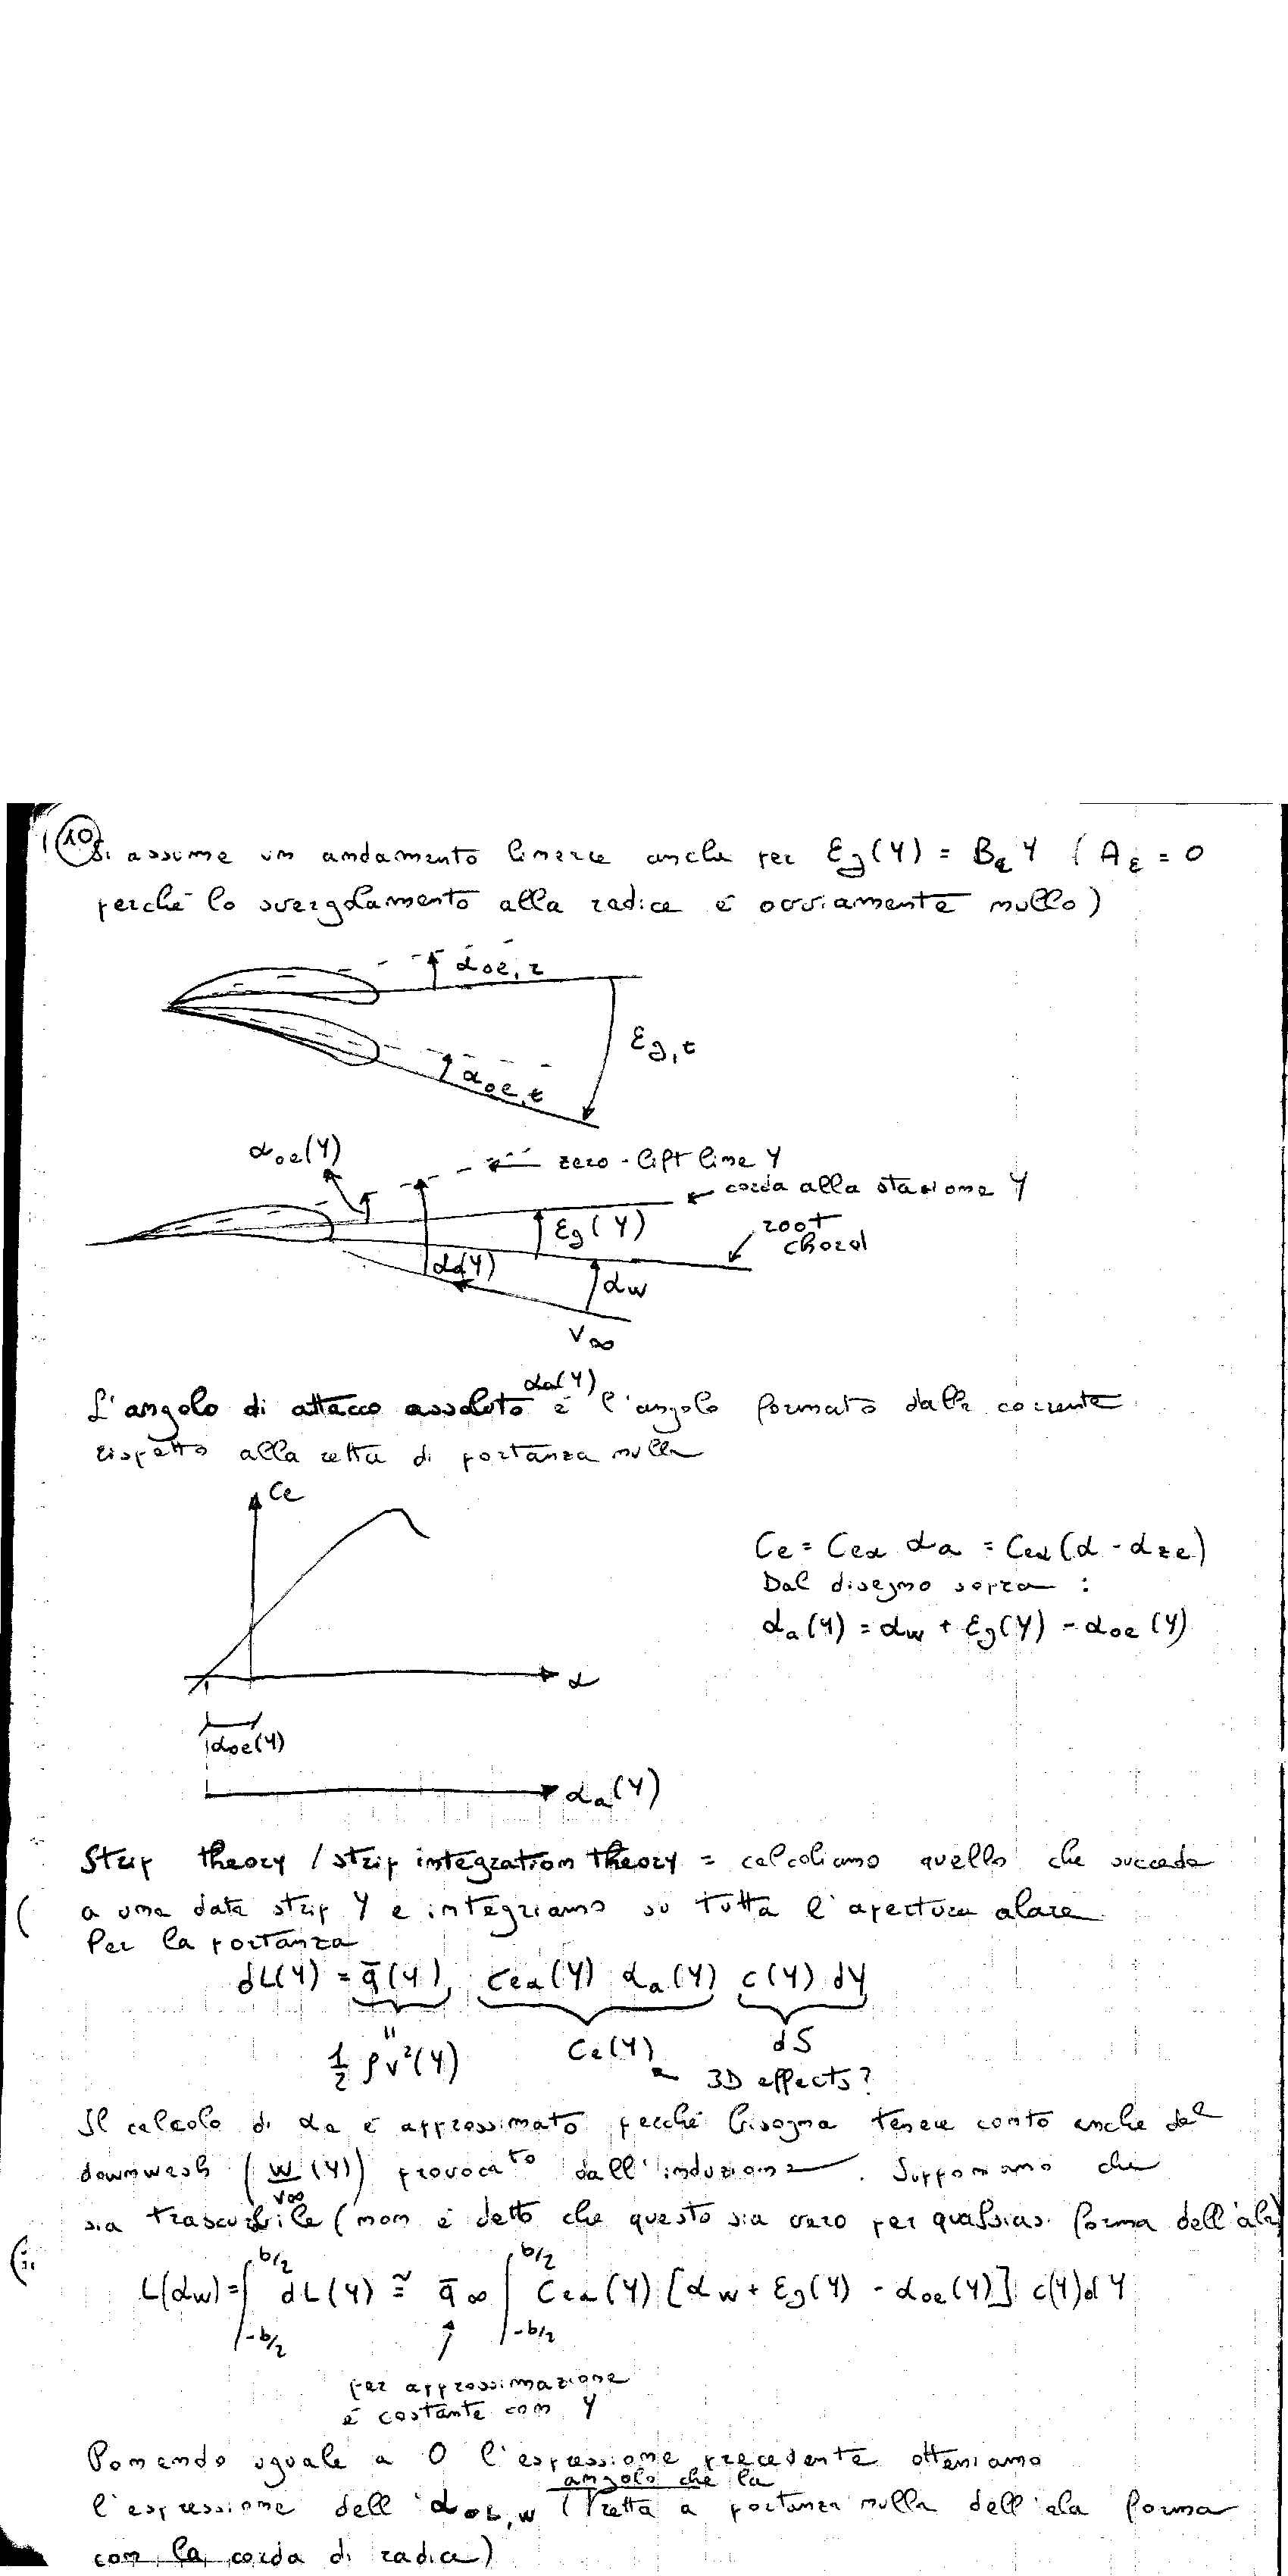 10
Si assume un andamento lineare anche per εg(Y) = Bε Y (Aε = 0
perché lo svergolamento alla radice è ovviamente nullo)
α0ℓ,r
εg,t
α0ℓ,t
α0ℓ(Y)
zero-lift line Y
corda alla stazione Y
εg(Y)
root
chord
αa(Y)
αw
V∞
αa(Y)
L'angolo di attacco assoluto è l'angolo formato dalla corrente
rispetto alla retta di portanza nulla
Cℓ
Cℓ = Cℓα αa = Cℓα(α - αzℓ)
Dal disegno sopra :
αa(Y) = αw + εg(Y) - α0ℓ(Y)
α
|α0ℓ(Y)
αa(Y)
Strip theory / strip integration theory = calcoliamo quello che succede
a una data strip Y e integriamo su tutta l'apertura alare
Per la portanza
dL(Y) = q̄(Y) Cℓα(Y) αa(Y) c(Y) dY
"
1/2 ρV²(Y)
Cℓ(Y)
dS
3D effects?
Il calcolo di αa è approssimato perché bisogna tenere conto anche del
downwash (w/V∞ (Y)) provocato dall'induzione. Supponiamo che
sia trascurabile (non è detto che questo sia vero per qualsiasi forma dell'ala)
L(αw) = ∫_{-b/2}^{b/2} dL(Y) ≅ q̄∞ ∫_{-b/2}^{b/2} Cℓα(Y) [αw + εg(Y) - α0ℓ(Y)] c(Y) dY
per approssimazione
è costante con Y
Ponendo uguale a 0 l'espressione precedente otteniamo
angolo che la
l'espressione dell'α0L,W (retta a portanza nulla dell'ala forma
con la corda di radice)